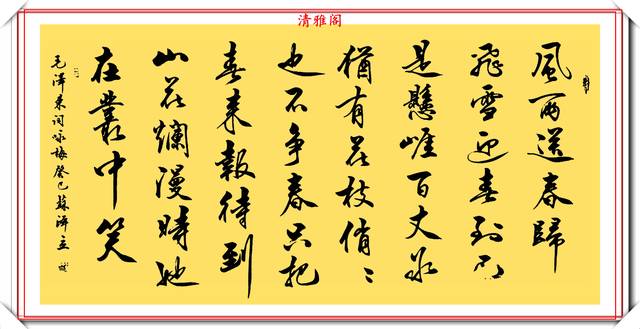 清雅阁
風雨送春歸
飛雪迎春到已
是懸崖百丈冰
猶有花枝俏〻
也不爭春只把
春來報待到
山花爛漫時她
在叢中笑
毛澤東詞咏梅癸巳蘇澤立